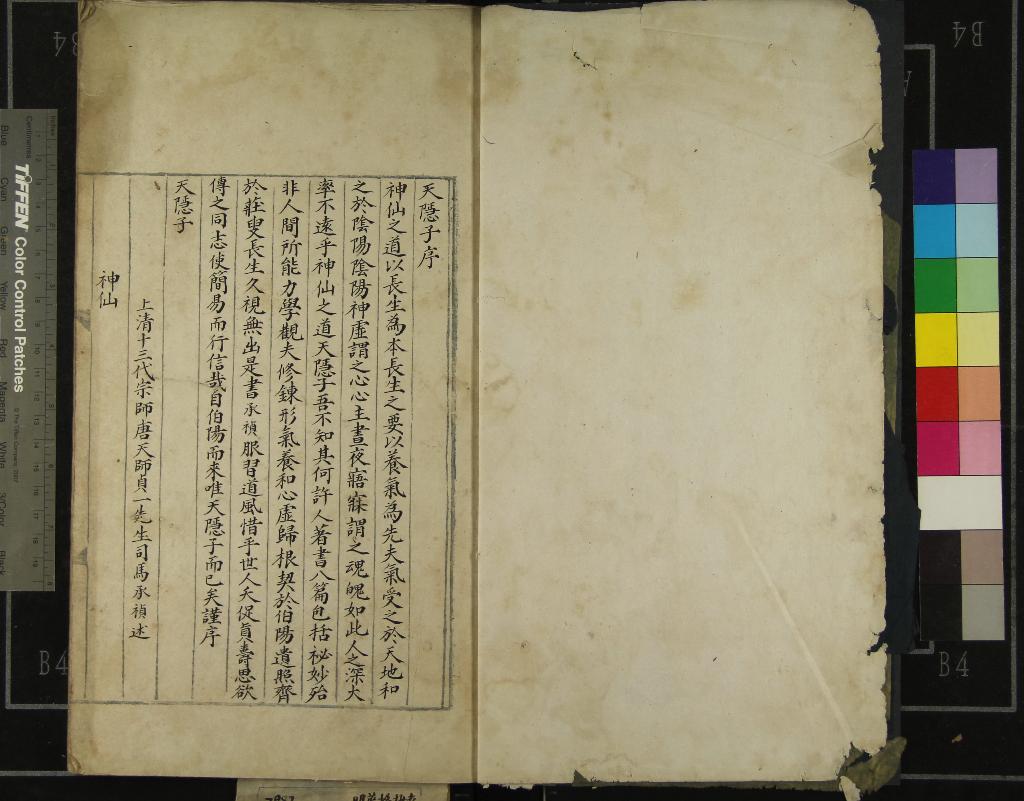 天隱子序
神仙之道以長生為本長生之要以養氣為先夫氣受之於天地和
之於陰陽陰陽神虛謂之心心主晝夜寤寐謂之魂魄如此人之深大
率不遠乎神仙之道天隱子吾不知其何許人著書八篇包括祕妙殆
非人間所能力學觀夫修鍊形氣養和心虛歸根契於伯陽遺照齊
於莊叟長生久視無出是書承禎服習道風惜乎世人夭促真壽思欲
傳之同志使簡易而行信哉自伯陽而來唯天隱子而已矣謹序
天隱子
上清十三代宗師唐天師貞一先生司馬承禎述
神仙
TIFFEN Color Control Patches
Blue Cyan Green Yellow Red Magenta White 3/Color Black
Centimetres
Inches
B4
B4
B4
B4
A